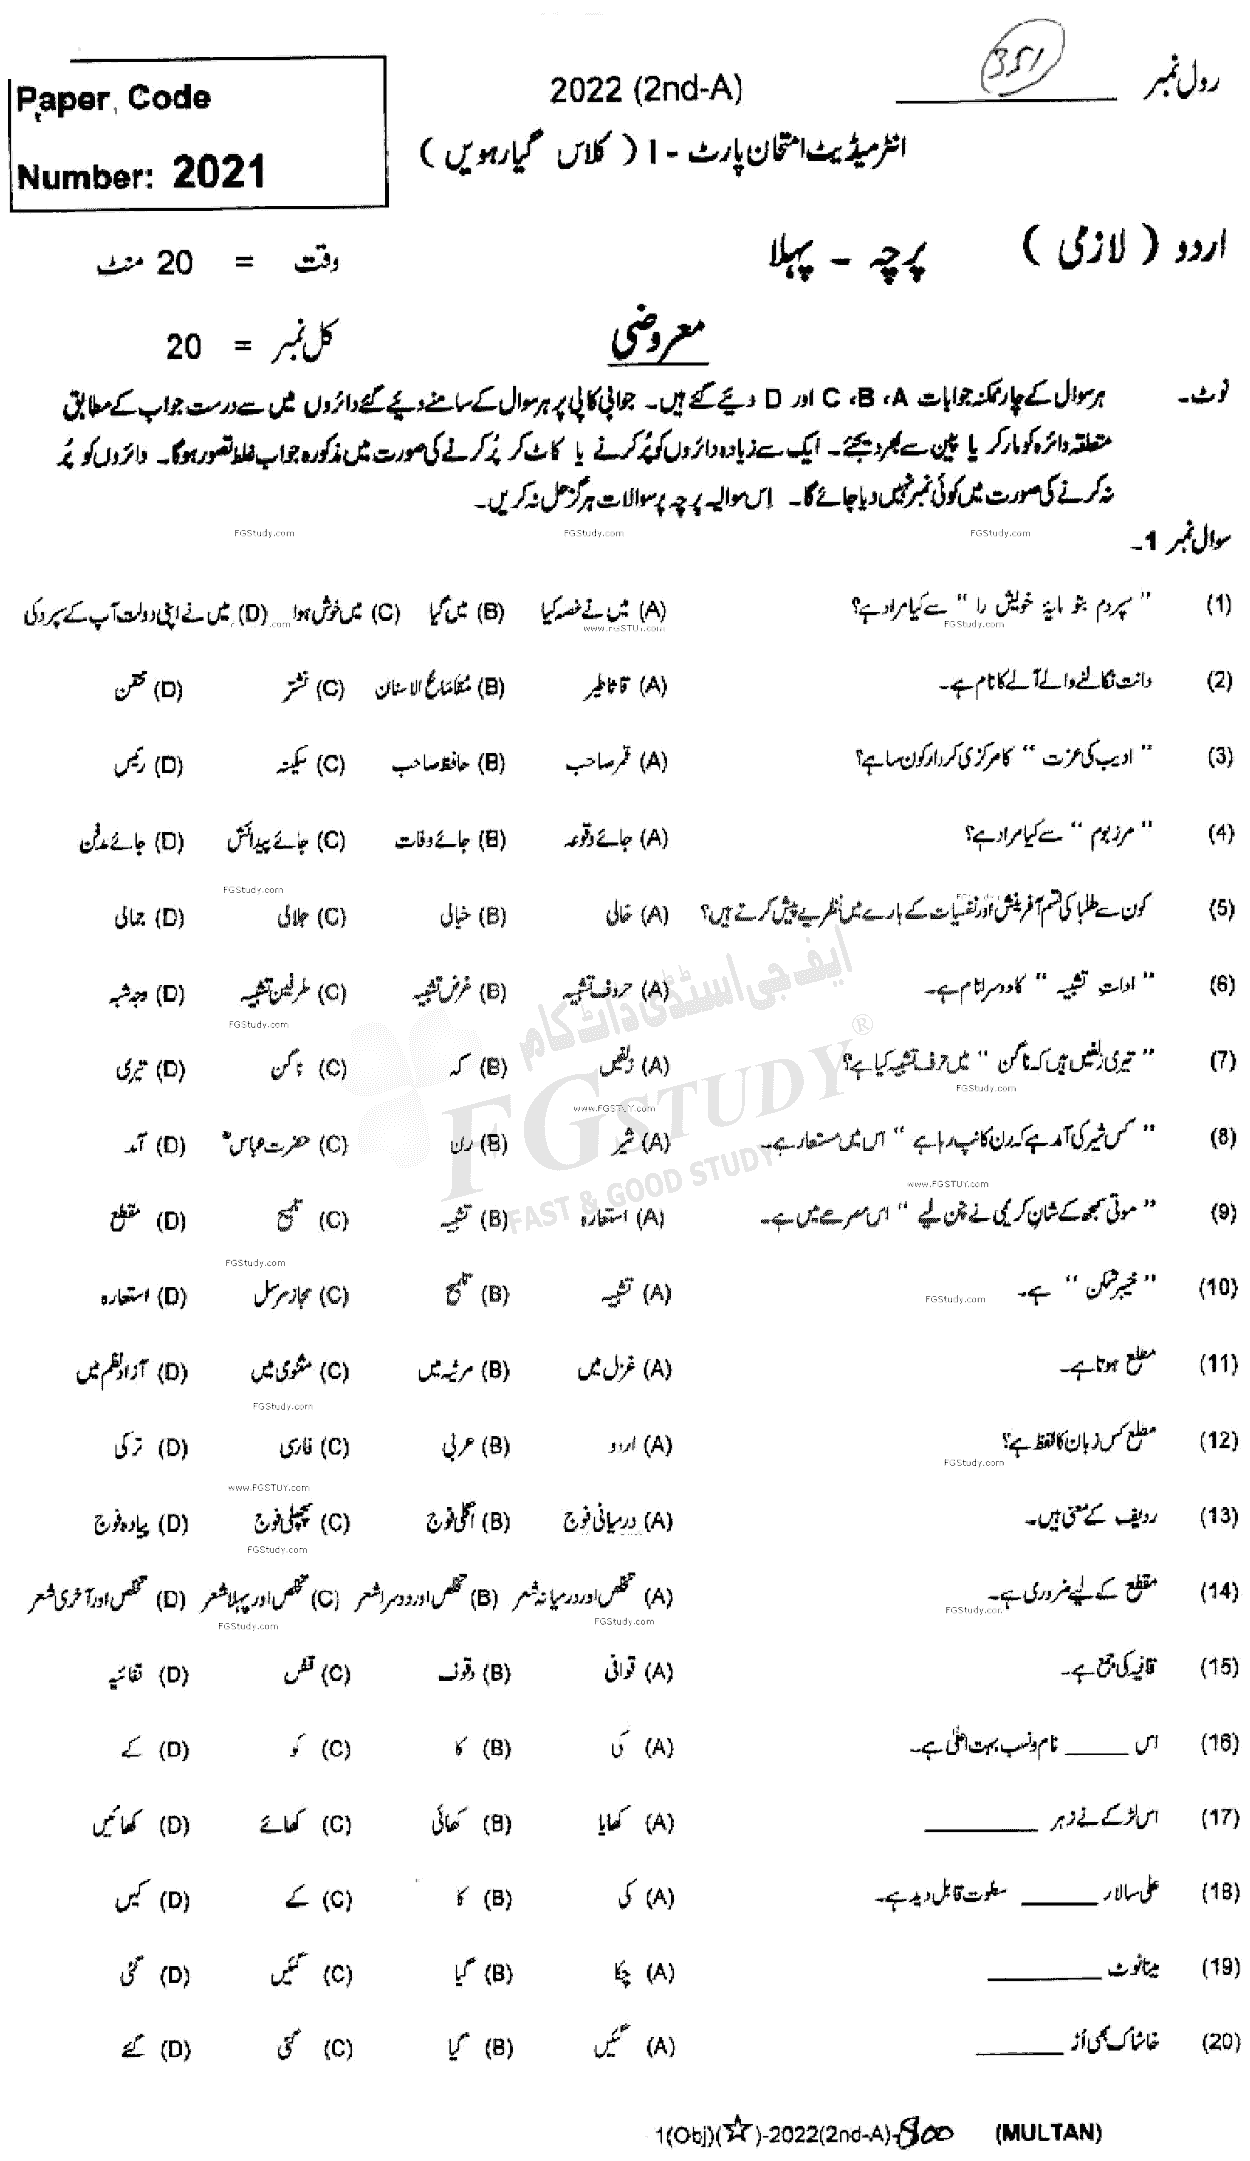 Paper Code
Number: 2021
2022 (2nd-A)
رول نمبر ________ 351
انٹرمیڈیٹ امتحان پارٹ - I ( کلاس گیارہویں )
اردو ( لازمی ) پرچہ - پہلا
وقت = 20 منٹ
معروضی
کل نمبر = 20
نوٹ۔ ہر سوال کے چار ممکنہ جوابات A ،B ،C اور D دیئے گئے ہیں۔ جوابی کاپی پر ہر سوال کے سامنے دیئے گئے دائروں میں سے درست جواب کے مطابق
متعلقہ دائرہ کو مارکر یا پین سے بھر دیجئے۔ ایک سے زیادہ دائروں کو پُر کرنے یا کاٹ کر پُر کرنے کی صورت میں مذکورہ جواب غلط تصور ہوگا۔ دائروں کو پُر
نہ کرنے کی صورت میں کوئی نمبر نہیں دیا جائے گا۔ اس سوالیہ پرچہ پر سوالات ہرگز حل نہ کریں۔
سوال نمبر 1۔
(1) " سپردم بتو مایۂ خویش را " سے کیا مراد ہے؟ (A) میں نے غصہ کیا (B) میں گیا (C) میں خوش ہوا (D) میں نے اپنی دولت آپ کے سپرد کی
(2) دانت نکالنے والے آلے کا نام ہے۔ (A) قاثاطیر (B) مقناح الاسنان (C) نشتر (D) محقن
(3) " ادیب کی عزت " کا مرکزی کردار کون سا ہے؟ (A) قمر صاحب (B) حافظ صاحب (C) سکینہ (D) رئیس
(4) " مرزبوم " سے کیا مراد ہے؟ (A) جائے وقوعہ (B) جائے وفات (C) جائے پیدائش (D) جائے مدفن
(5) کون سے طلبا کی قسم آفرینش اور نفسیات کے بارے میں نظریے پیش کرتے ہیں؟ (A) خالی (B) خیالی (C) جلالی (D) جمالی
(6) " اداتِ تشبیہ " کا دوسرا نام ہے۔ (A) حروف تشبیہ (B) غرض تشبیہ (C) طرفین تشبیہ (D) وجہ شبہ
(7) " تیری زلفیں ہیں کہ ناگن " میں حرف تشبیہ کیا ہے؟ (A) زلفیں (B) کہ (C) ناگن (D) تیری
(8) " کس شیر کی آمد ہے کہ رن کانپ رہا ہے " اس میں مستعار ہے۔ (A) شیر (B) رن (C) حضرت عباسؓ (D) آمد
(9) " موتی سمجھ کے شانِ کریمی نے چن لیے " اس مصرعے میں ہے۔ (A) استعارہ (B) تشبیہ (C) تلمیح (D) مقطع
(10) " خیبر شکن " ہے۔ (A) تشبیہ (B) تلمیح (C) مجاز مرسل (D) استعارہ
(11) مطلع ہوتا ہے۔ (A) غزل میں (B) مرثیہ میں (C) مثنوی میں (D) آزاد نظم میں
(12) مطلع کس زبان کا لفظ ہے؟ (A) اردو (B) عربی (C) فارسی (D) ترکی
(13) ردیف کے معنی ہیں۔ (A) درمیانی فوج (B) اگلی فوج (C) پچھلی فوج (D) پیادہ فوج
(14) مقطع کے لیے ضروری ہے۔ (A) تخلص اور درمیانہ شعر (B) تخلص اور دوسرا شعر (C) تخلص اور پہلا شعر (D) تخلص اور آخری شعر
(15) قافیہ کی جمع ہے۔ (A) قوافی (B) وقوف (C) قفس (D) قفائیہ
(16) اس ______ نام و نسب بہت اعلیٰ ہے۔ (A) کی (B) کا (C) کو (D) کے
(17) اس لڑکے نے زہر ________ (A) کھایا (B) کھائی (C) کھائے (D) کھائیں
(18) علی سالار ______ سطوت قابل دید ہے۔ (A) کی (B) کا (C) کے (D) کیں
(19) مینا ٹوٹ ________ (A) چکا (B) گیا (C) گئیں (D) گئی
(20) خاشاک بھی اُڑ ______ (A) گئیں (B) گیا (C) گئی (D) گئے
1(Obj)(☆)-2022(2nd-A)-800 (MULTAN)
ایف جی اسٹڈی ڈاٹ کام
FGSTUDY®
FAST & GOOD STUDY
FGStudy.com
www.FGSTUY.com